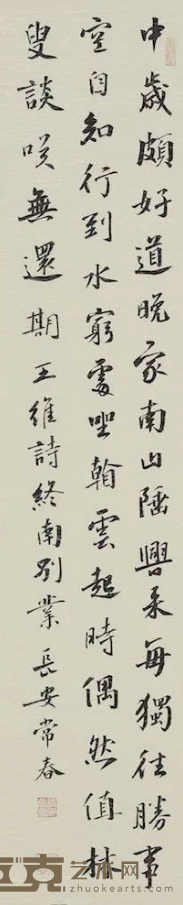 中歲頗好道晚家南山陲興来每獨往勝事
空自知行到水窮處坐翰雲起時偶然值林
叟談咲無還期王維詩終南別業長安常春